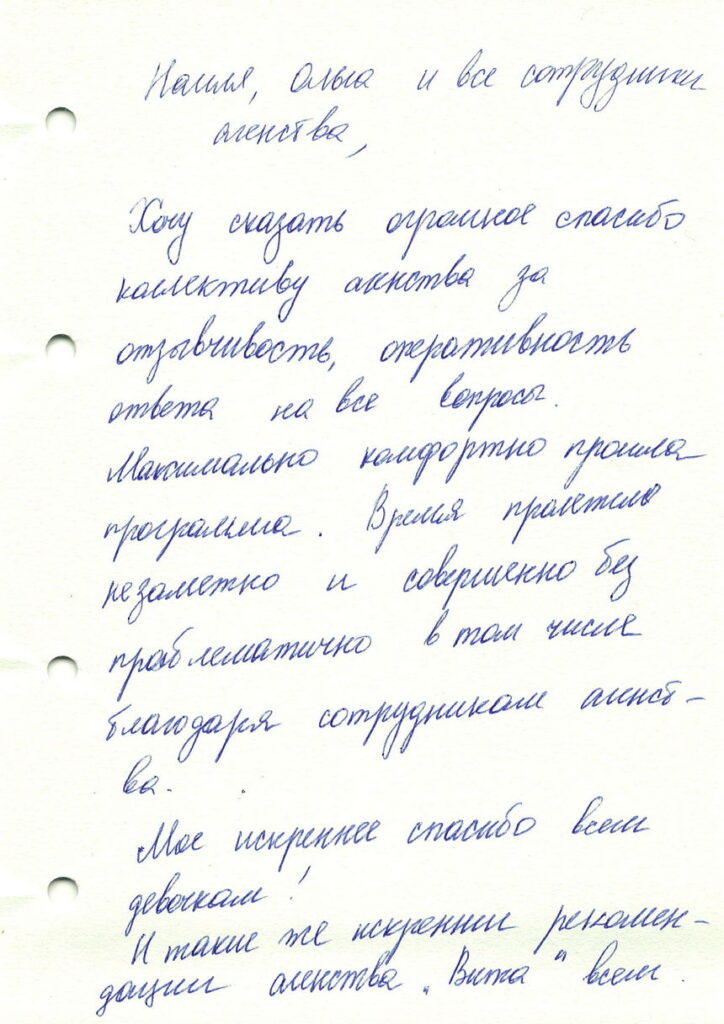 Наиля, Ольга и все сотрудники
агенства,
Хочу сказать огромное спасибо
коллективу агенства за
отзывчивость, оперативность
ответа на все вопросы.
Максимально комфортно прошла
программа. Время пролетело
незаметно и совершенно без
проблематично в том числе
благодаря сотрудникам агенст-
ва.
Мое искреннее спасибо всем
девочкам!
И такие же искреннии рекомен-
дации агенства „Вита" всем.